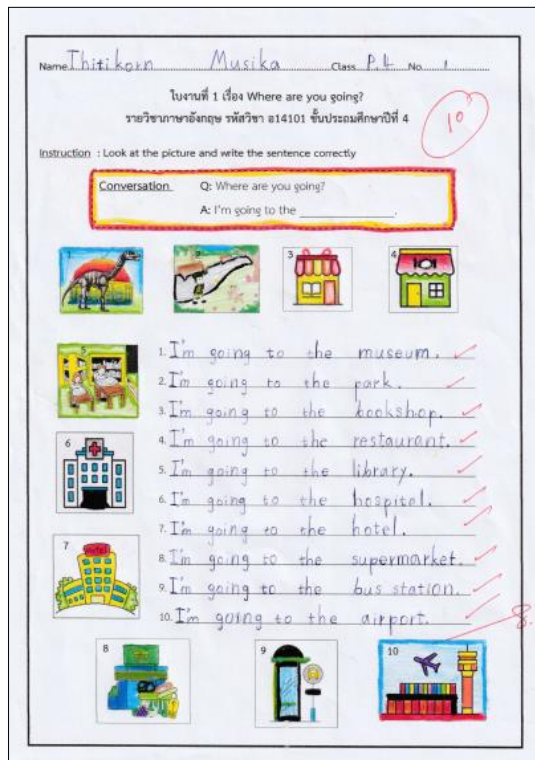 Name Thitikorn Musika Class P.4 No. 1
ใบงานที่ 1 เรื่อง Where are you going?
รายวิชาภาษาอังกฤษ รหัสวิชา อ14101 ชั้นประถมศึกษาปีที่ 4
10
Instruction : Look at the picture and write the sentence correctly
Conversation Q: Where are you going?
A: I'm going to the ________________.
1
2
3
4
5
1. I'm going to the museum.
2. I'm going to the park.
3. I'm going to the bookshop.
4. I'm going to the restaurant.
5. I'm going to the library.
6
6. I'm going to the hospital.
7. I'm going to the hotel.
7
Hotel
8. I'm going to the supermarket.
9. I'm going to the bus station.
10. I'm going to the airport.
8
9
10